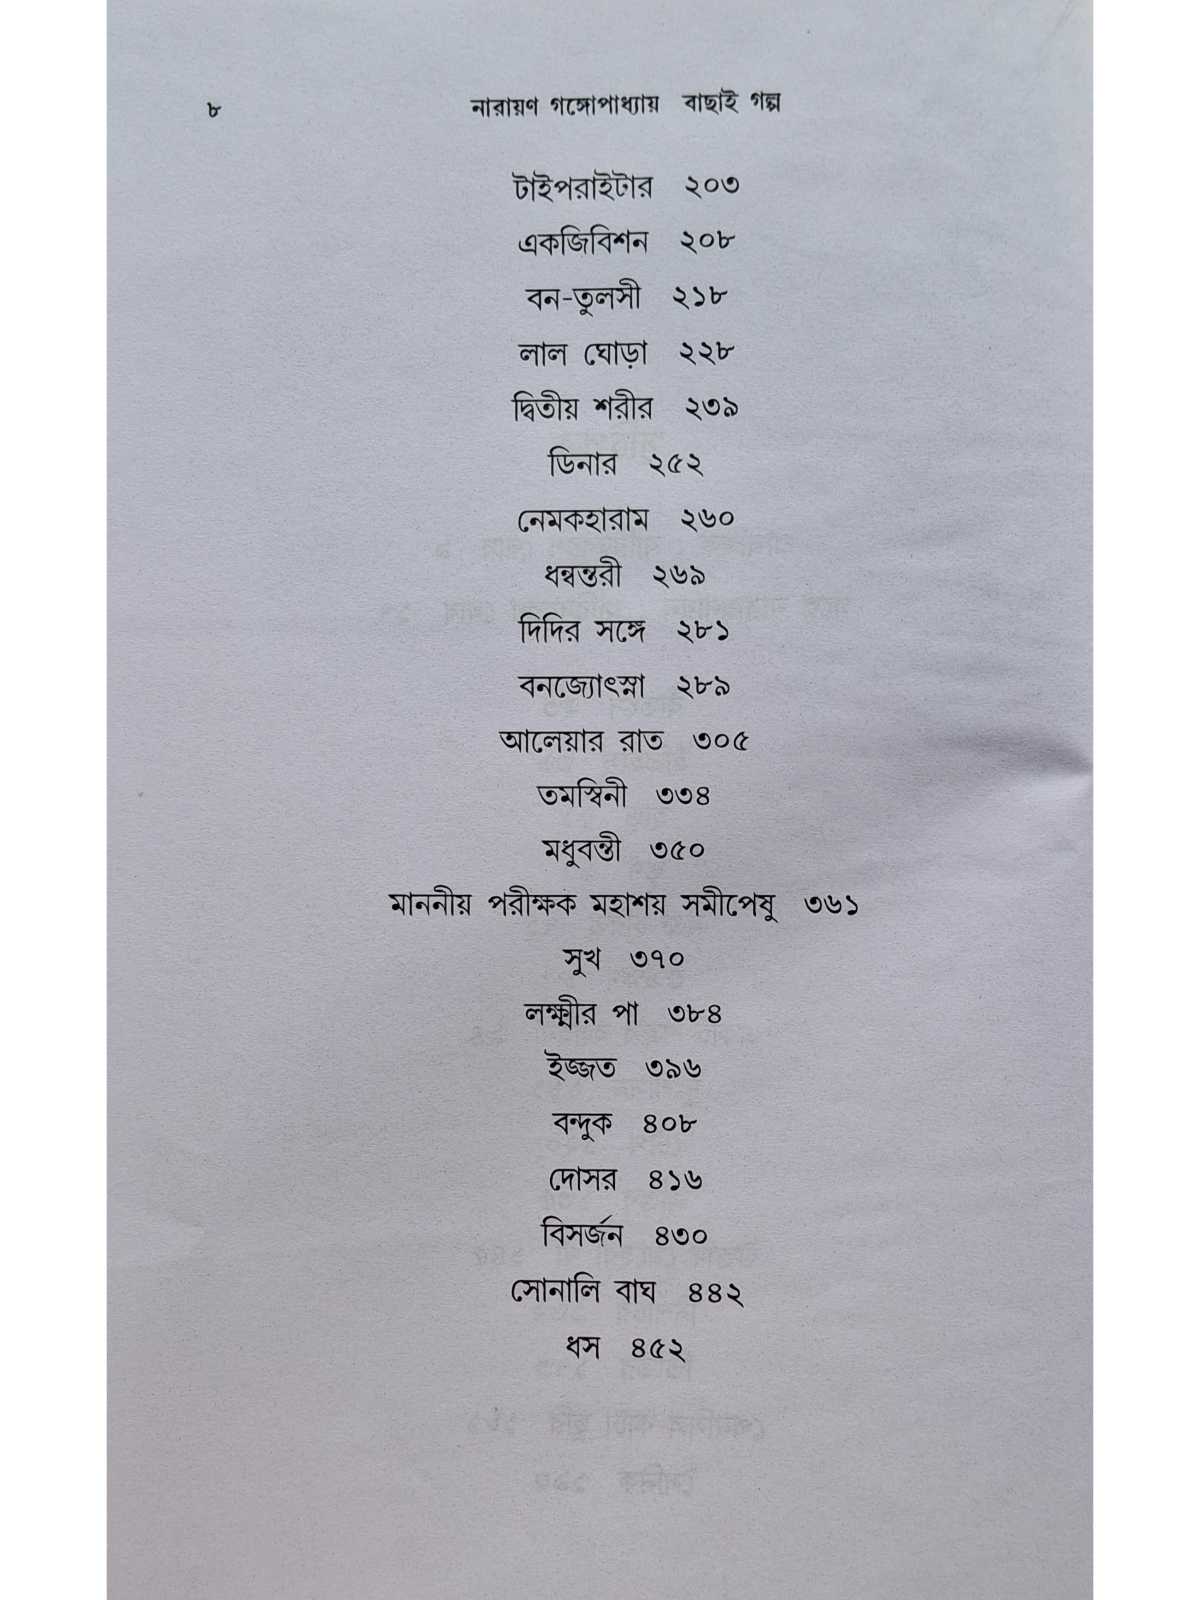 ৮ নারায়ণ গঙ্গোপাধ্যায় বাছাই গল্প
টাইপরাইটার ২০৩
একজিবিশন ২০৮
বন-তুলসী ২১৮
লাল ঘোড়া ২২৮
দ্বিতীয় শরীর ২৩৯
ডিনার ২৫২
নেমকহারাম ২৬০
ধন্বন্তরী ২৬৯
দিদির সঙ্গে ২৮১
বনজ্যোৎস্না ২৮৯
আলেয়ার রাত ৩০৫
তমস্বিনী ৩৩৪
মধুবন্তী ৩৫০
মাননীয় পরীক্ষক মহাশয় সমীপেষু ৩৬১
সুখ ৩৭০
লক্ষ্মীর পা ৩৮৪
ইজ্জত ৩৯৬
বন্দুক ৪০৮
দোসর ৪১৬
বিসর্জন ৪৩০
সোনালি বাঘ ৪৪২
ধস ৪৫২